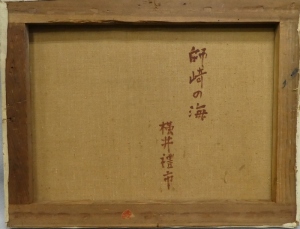 師崎の海
横井禮市